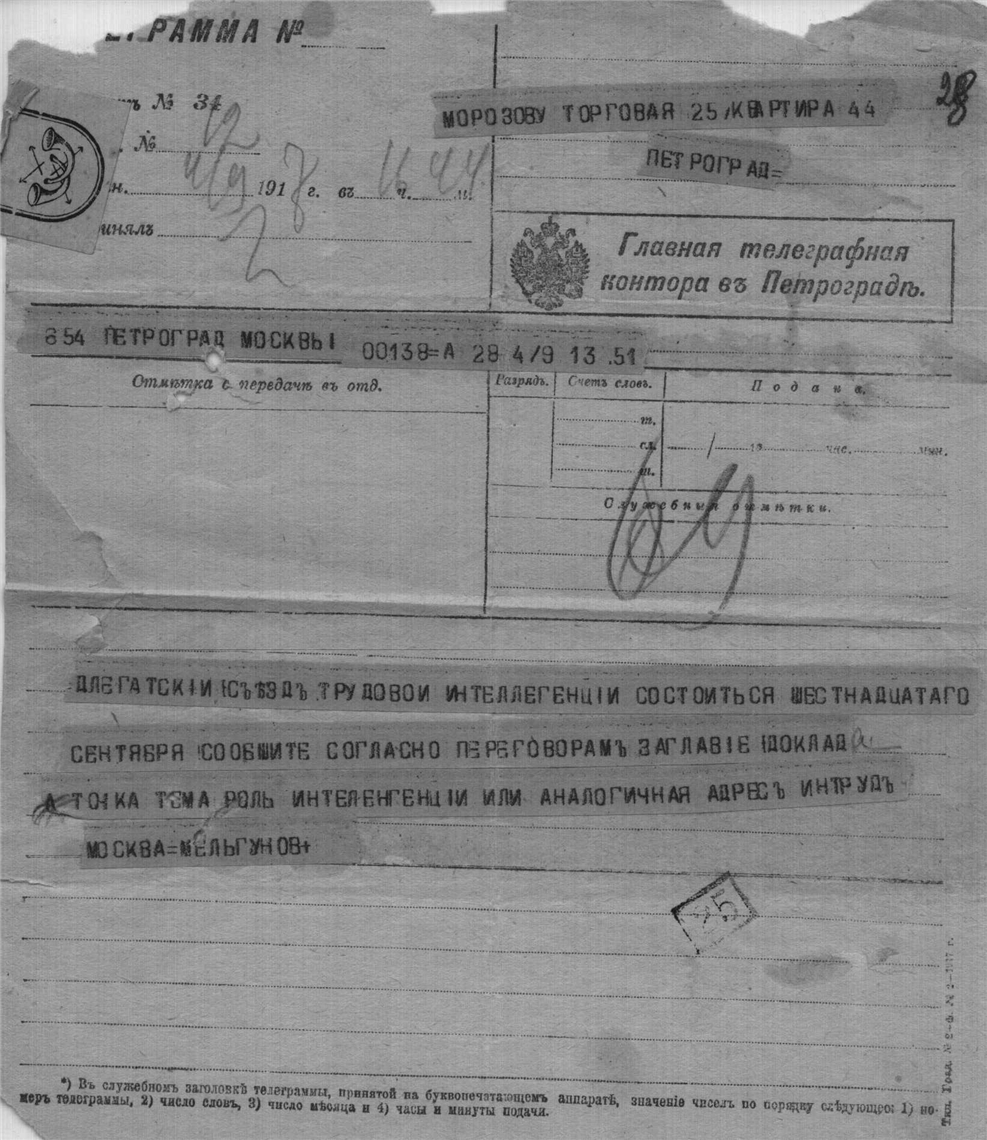 ГРАММА №
№ 34
МОРОЗОВУ ТОРГОВАЯ 25/КВАРТИРА 44
28
№ 12
ПЕТРОГРАД=
4/9 1918 г. въ 16 ч. 44 м.
Главная телеграфная
контора въ Петроградѣ.
854 ПЕТРОГРАД МОСКВЫ 00138=А 28 4/9 13.51
Отмѣтка о передачѣ въ отд.
Разрядъ. Счетъ словъ. Подана.
т.
сл. / час. мин.
ш.
Служебныя отмѣтки.
ДЛЕГАТСКІИ СЪѢЗДЪ ТРУДОВОИ ИНТЕЛЛЕГЕНЦІИ СОСТОИТЬСЯ ШЕСТНАДЦАТАГО
СЕНТЯБРЯ СООБШИТЕ СОГЛАСНО ПЕРЕГОВОРАМЪ ЗАГЛАВІЕ ДОКЛАДа
А ТОЧКА ТЕМА РОЛЬ ИНТЕЛЕНГЕНЦІИ ИЛИ АНАЛОГИЧНАЯ АДРЕСЪ ИНТРУДЪ
МОСКВА=МЕЛЬГУНОВ+
*) Въ служебномъ заголовкѣ телеграммы, принятой на буквопечатающемъ аппаратѣ, значеніе чиселъ по порядку слѣдующее: 1) но-
меръ телеграммы, 2) число словъ, 3) число мѣсяца и 4) часы и минуты подачи.